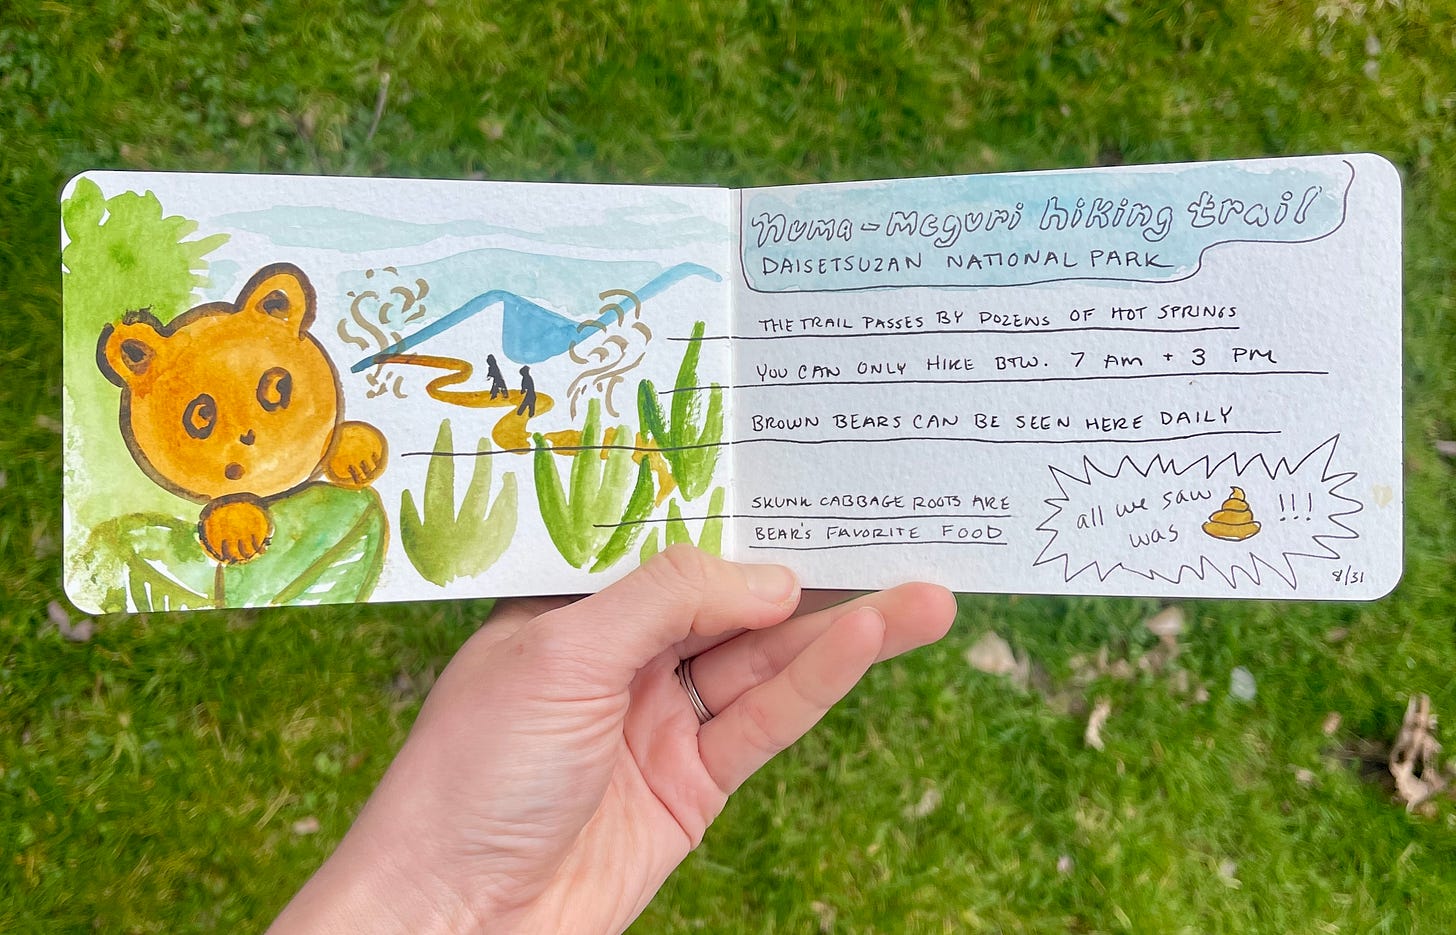 Numa-Meguri hiking trail
DAISETSUZAN NATIONAL PARK
THE TRAIL PASSES BY DOZENS OF HOT SPRINGS
YOU CAN ONLY HIKE BTW. 7 AM + 3 PM
BROWN BEARS CAN BE SEEN HERE DAILY
SKUNK CABBAGE ROOTS ARE
BEAR'S FAVORITE FOOD
all we saw
was !!!
8/31